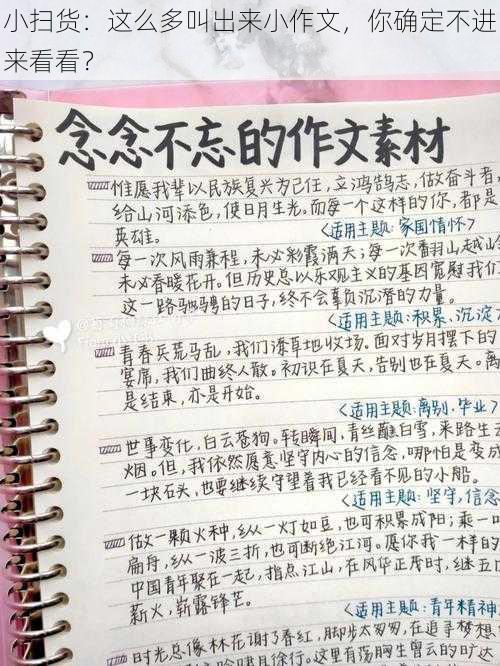 小扫货：这么多叫出来小作文，你确定不进
来看看？
念念不忘的作文素材
惟愿我辈以民族复兴为己任，立鸿鹄志，做奋斗者，
给山河添色，使日月生光。而每一个这样的你，都是
英雄。
<适用主题：家国情怀>
每一次风雨兼程，未必彩霞满天；每一次翻山越山
未必春暖花开。但历史总以乐观主义的基因宽慰我们
这一路驰骋的日子，终不会辜负沉潜的力量。
<适用主题：积累，沉淀
青春兵荒马乱，我们潦草地收场。面对岁月摆下的
宴席，我们曲终人散。初识在夏天，告别也在夏天。离
是结束，亦是开始。
<适用主题：离别，毕业>
世事变化，白云苍狗。转瞬间，青丝醮白雪，来路生云
烟。但，我依然愿意坚守内心的信念，哪怕是变成
一块石头，也要继续守望着我已经看不见的小船。
<适用主题：坚守，信念
做一颗火种，纵一灯如豆，也可积累成阳；乘一叶
扁舟，纵一波三折，也可断绝江河。愿你我一样的
中国青年聚在一起，指点江山，在风华正茂时，继五四
薪火，崭露锋芒。
<适用主题：青年精神
时光总像林花谢了春红，脚步太匆匆，在追寻梦想